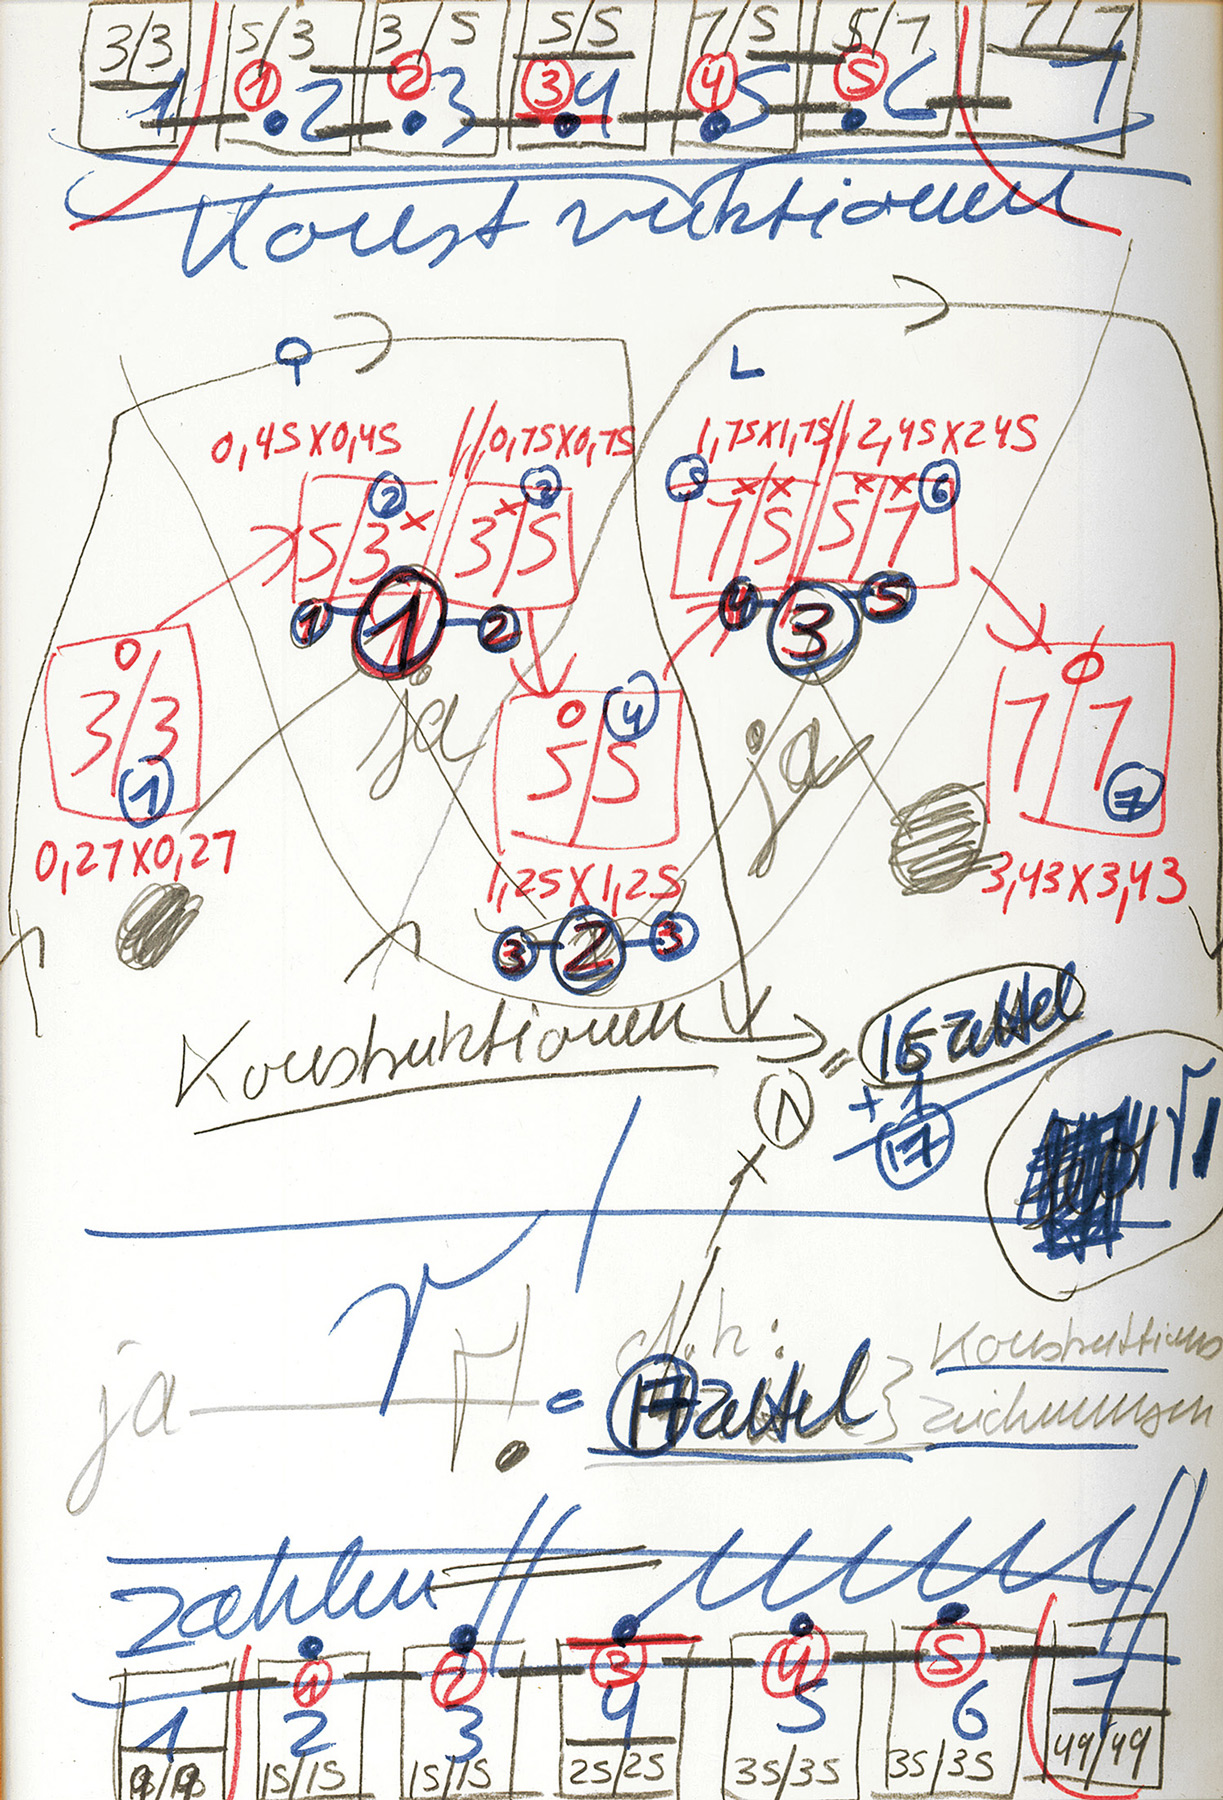 3/3 5/3 3/5 5/5 7/5 5/7 7/7
1 1 2 2 3 3 4 4 5 5 6 7
Konstruktionen
L
0,45X0,45 // 0,75X0,75 1,75X1,75 // 2,45X245
2 3 5 6
5/3 x // 3 x/5 7/5 // 5/7
1 1 2 4 3 5
0 ja 0 4 ja 0
3/3 5/5 7/7
1 7
0,27X0,27 1,25X1,25 3,43X3,43
3 2 3
Konstruktionen = 16 zettel
1 + 1
17
d.h:
ja ! = 17 zettel } Konstruktions
zeichnungen
zahlen
1 2 3 4 5
1 2 3 4 5 6 7
9/9 15/15 15/15 25/25 35/35 35/35 49/49